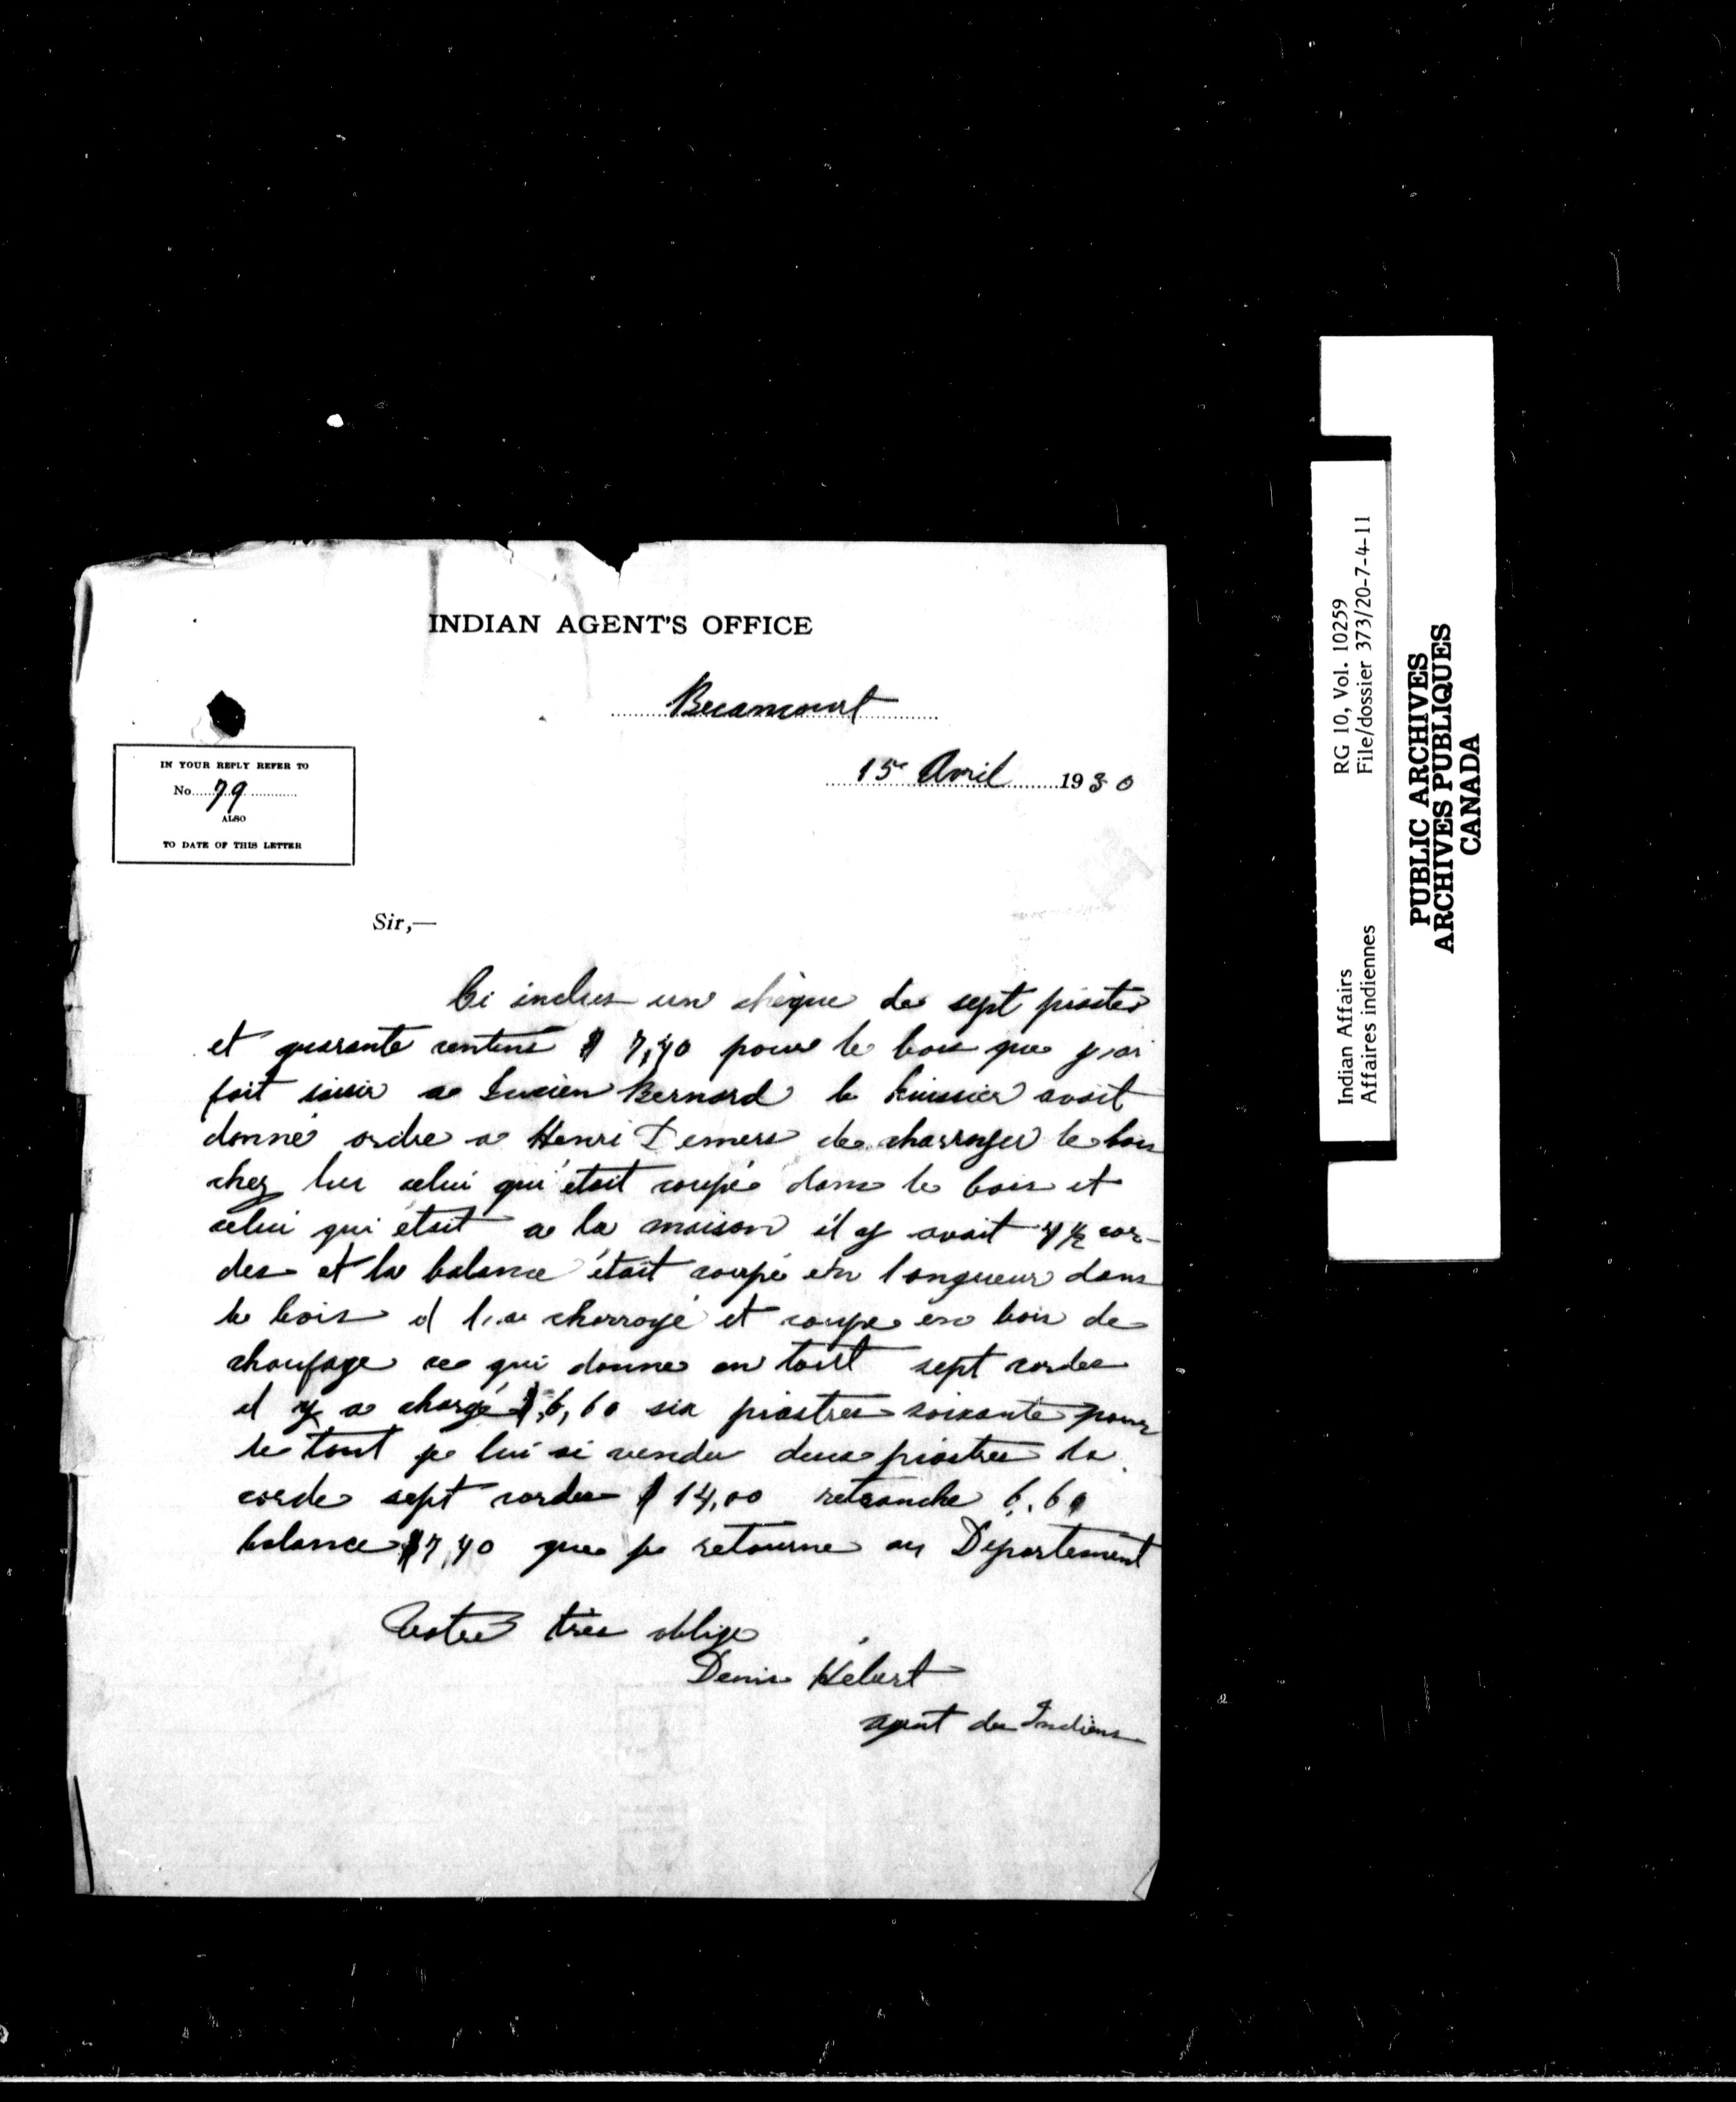 INDIAN AGENT'S OFFICE
Becancourt
15e Avril 1930
IN YOUR REPLY REFER TO
No. 79
ALSO
TO DATE OF THIS LETTER
Sir,—
Ci inclus un chèque de sept piastres
et quarante centins $ 7,40 pour le bois que j'ai
fait saisir a Lucien Bernard le huissier avait
donné ordre a Henri Demers de charroyer le bois
chez lui celui qui était coupé dans le bois et
celui qui était a la maison il y avait 4 ½ cor-
des et la balance était coupé en longueur dans
le bois il l'a charroyé et coupe en bois de
chaufage ce qui donne en tout sept cordes
il y a chargé $ 6,60 six piastres soixante pour
le tout je lui ai vendu deux piastres la
corde sept cordes $ 14,00 retranche 6,60
balance $7,40 que je retourne au Département
Votre très oblige
Denis Hébert
agent des Indiens
Indian Affairs RG 10, Vol. 10259
Affaires indiennes File/dossier 373/20-7-4-11
PUBLIC ARCHIVES
ARCHIVES PUBLIQUES
CANADA